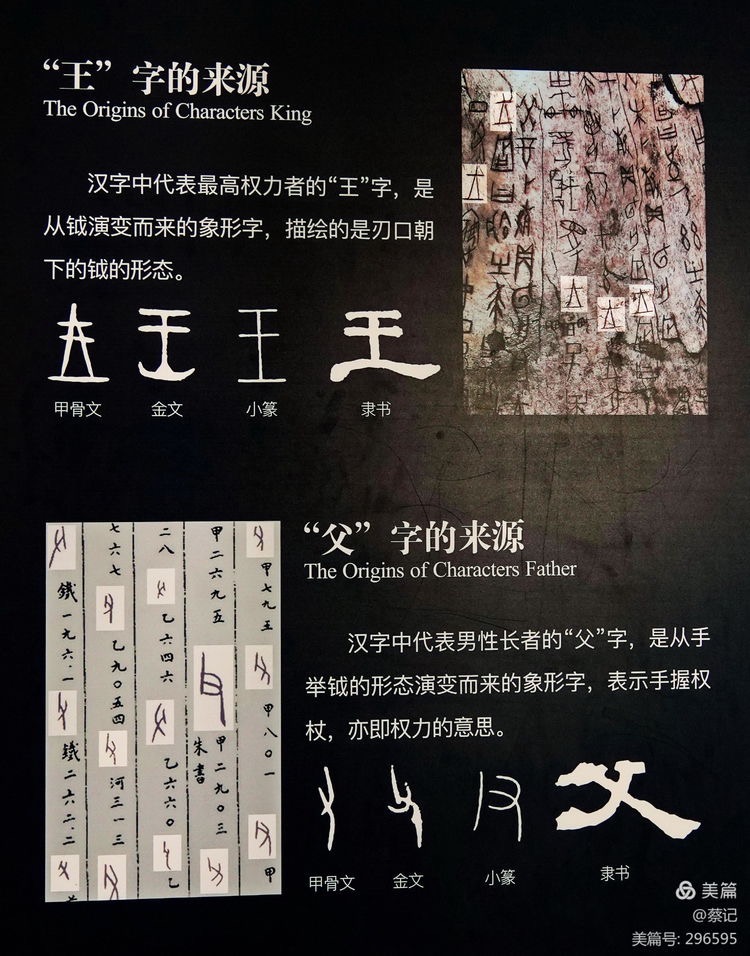 “王”字的来源
The Origins of Characters King
汉字中代表最高权力者的“王”字，是
从钺演变而来的象形字，描绘的是刃口朝
下的钺的形态。
甲骨文 金文 小篆 隶书
“父”字的来源
The Origins of Characters Father
汉字中代表男性长者的“父”字，是从手
举钺的形态演变而来的象形字，表示手握权
杖，亦即权力的意思。
甲骨文 金文 小篆 隶书
甲七九五
甲八〇一
甲
甲二六九五
甲二九〇三
朱書
二八
乙六四六
乙六六〇
乙
七六七
乙九〇五四
河三一三
鐵一九六.一
鐵二六二.二
美篇
@蔡记
美篇号: 296595